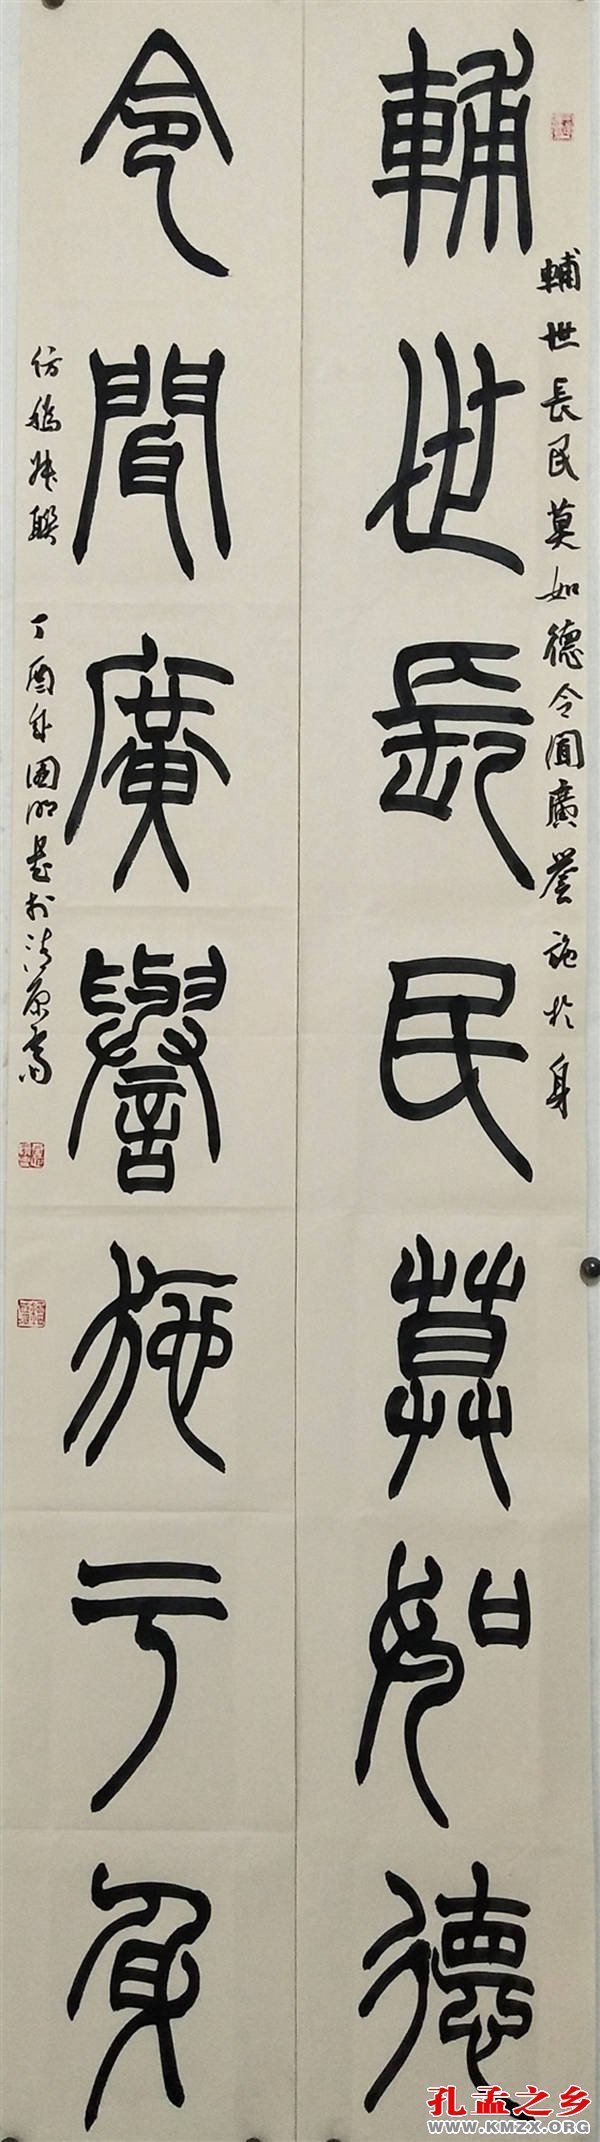 輔世長民莫如德
輔世長民莫如德令聞廣譽施於身
令聞廣譽施亏身
仿 聯 丁酉年國明 於清原齋
孔孟之乡
WWW.KMZX.ORG